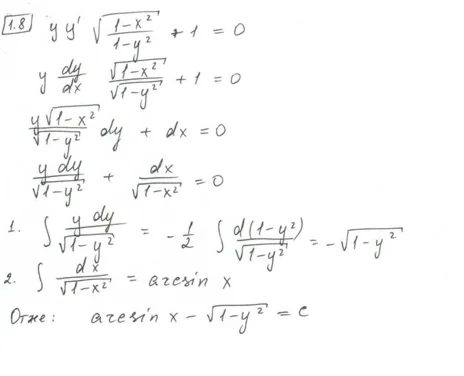 1.8 y y' √((1-x²)/(1-y²)) + 1 = 0
y dy/dx √(1-x²)/√(1-y²) + 1 = 0
y√(1-x²)/√(1-y²) dy + dx = 0
y dy/√(1-y²) + dx/√(1-x²) = 0
1. ∫ y dy/√(1-y²) = -1/2 ∫ d(1-y²)/√(1-y²) = -√(1-y²)
2. ∫ dx/√(1-x²) = arcsin x
Отже: arcsin x - √(1-y²) = C